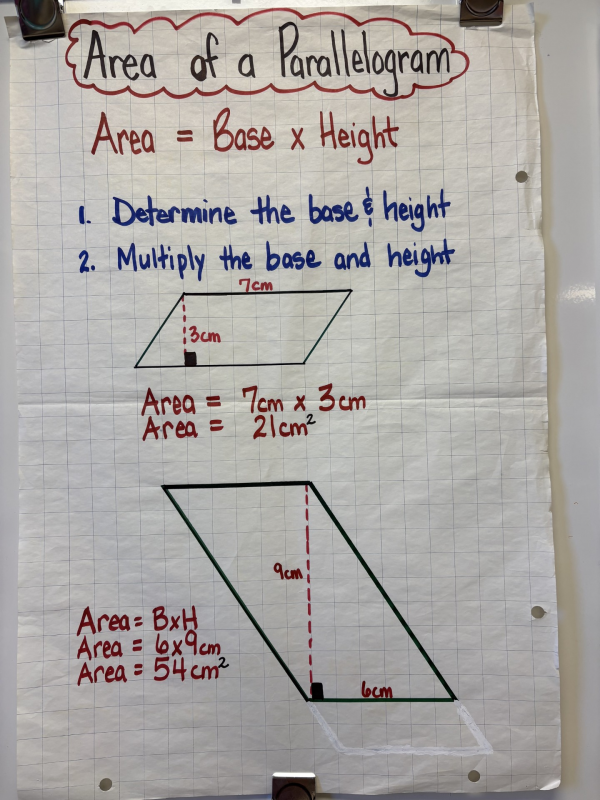 Area of a Parallelogram
Area = Base x Height
1. Determine the base & height
2. Multiply the base and height
7cm
3cm
Area = 7cm x 3cm
Area = 21cm²
9cm
Area = BxH
Area = 6x9cm
Area = 54cm²
6cm